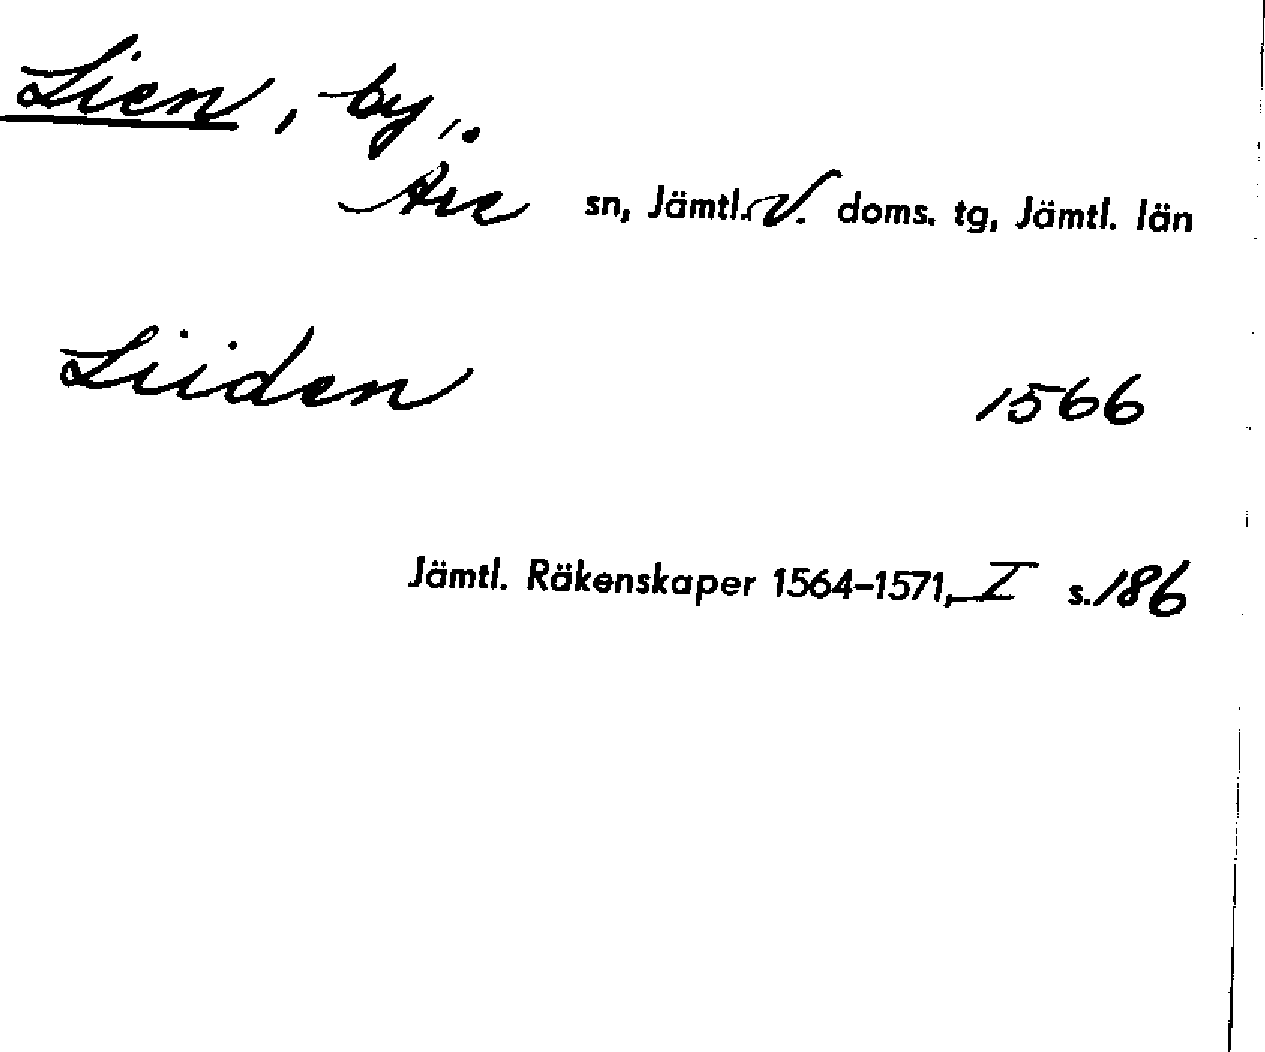 Lien, by,.
Åre sn, Jämtl. V. doms. tg, Jämtl. län
Liiden 1566
Jämtl. Räkenskaper 1564-1571, I s. 186